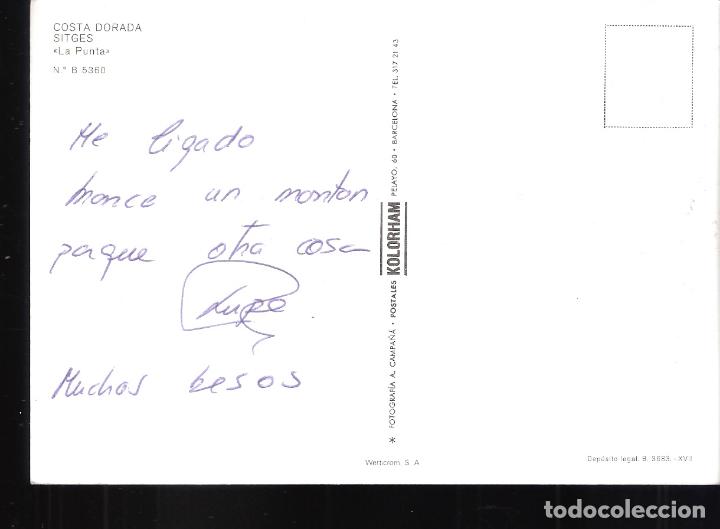 COSTA DORADA
SITGES
«La Punta»
N.° B 5360
He ligado
bronce un monton
porque otra cosa
Muchos besos
* FOTOGRAFÍA A. CAMPAÑÁ • POSTALES KOLORHAM PELAYO, 60 • BARCELONA • TEL. 317 21 43
Werticrom, S. A
Depósito legal. B. 3683. -XVII
todocoleccion